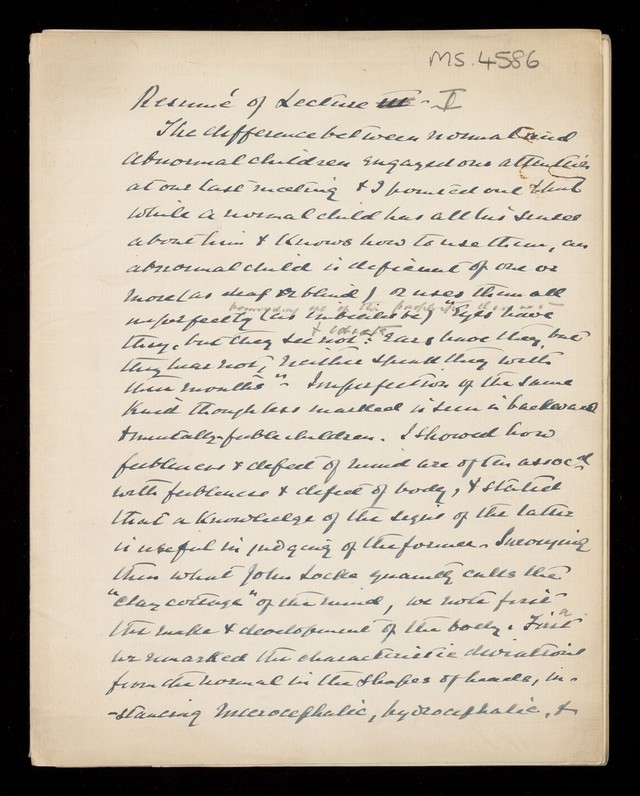 MS. 4586
Resumé of Lecture III - II
The difference between normal and
abnormal children engaged our attention
at our last meeting & I pointed out that
while a normal child has all his senses
about him & knows how to use them, an
abnormal child is deficient of one or
more (as deaf or blind) or uses them all
reminding one of the prophet's
imperfectly (as imbeciles) "Eyes have
&
they, but they see not: Ears have they, but
they hear not, neither speak they with
their mouths". Imperfection of the same
kind though less marked is seen in backward
& mentally-feeble children. I showed how
feebleness & defect of mind are often assocd
with feebleness & defect of body, & stated
that a knowledge of the signs of the latter
is useful in judging of the former. Surveying
then what John Locke quaintly calls the
"clay cottage" of the mind, we note first
the make & development of the body. First
we remarked the characteristic deviations
from the normal in the shapes of heads, in-
-stancing microcephalic, hydrocephalic, &